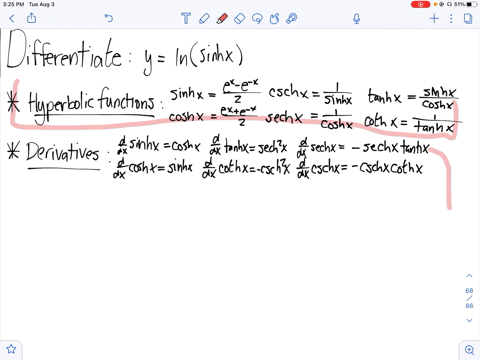 3:25 PM Tue Aug 3 51%
Differentiate: y = ln(sinhx)
* Hyperbolic functions: sinhx = (eˣ-e⁻ˣ)/2 cschx = 1/sinhx tanhx = sinhx/coshx
coshx = (eˣ+e⁻ˣ)/2 sechx = 1/coshx cothx = 1/tanhx
* Derivatives: d/dx sinhx = coshx d/dx tanhx = sech²x d/dx sechx = - sechx tanhx
d/dx coshx = sinhx d/dx cothx = -csch²x d/dx cschx = -cschx cothx
68
/
86